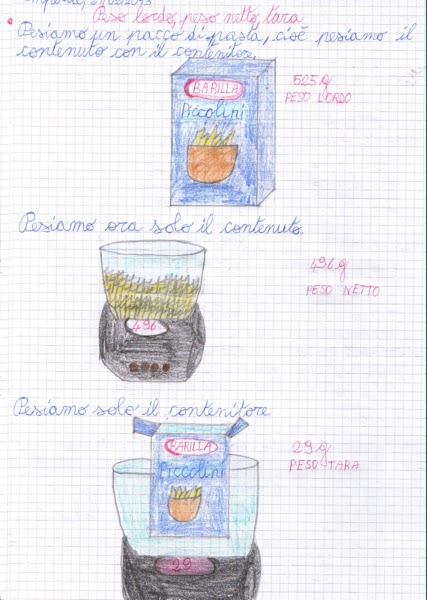 Peso lordo, peso netto, tara
Pesiamo un pacco di pasta, cioè pesiamo il
contenuto con il contenitore.
BARILLA
Piccolini
525 g
PESO LORDO
Pesiamo ora solo il contenuto.
496 g
PESO NETTO
496
Pesiamo solo il contenitore
BARILLA
Piccolini
29 g
PESO TARA
29